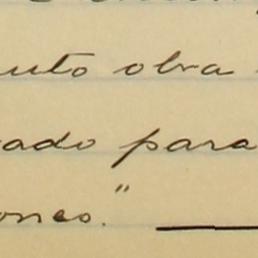 uto obra
ado para
ones."